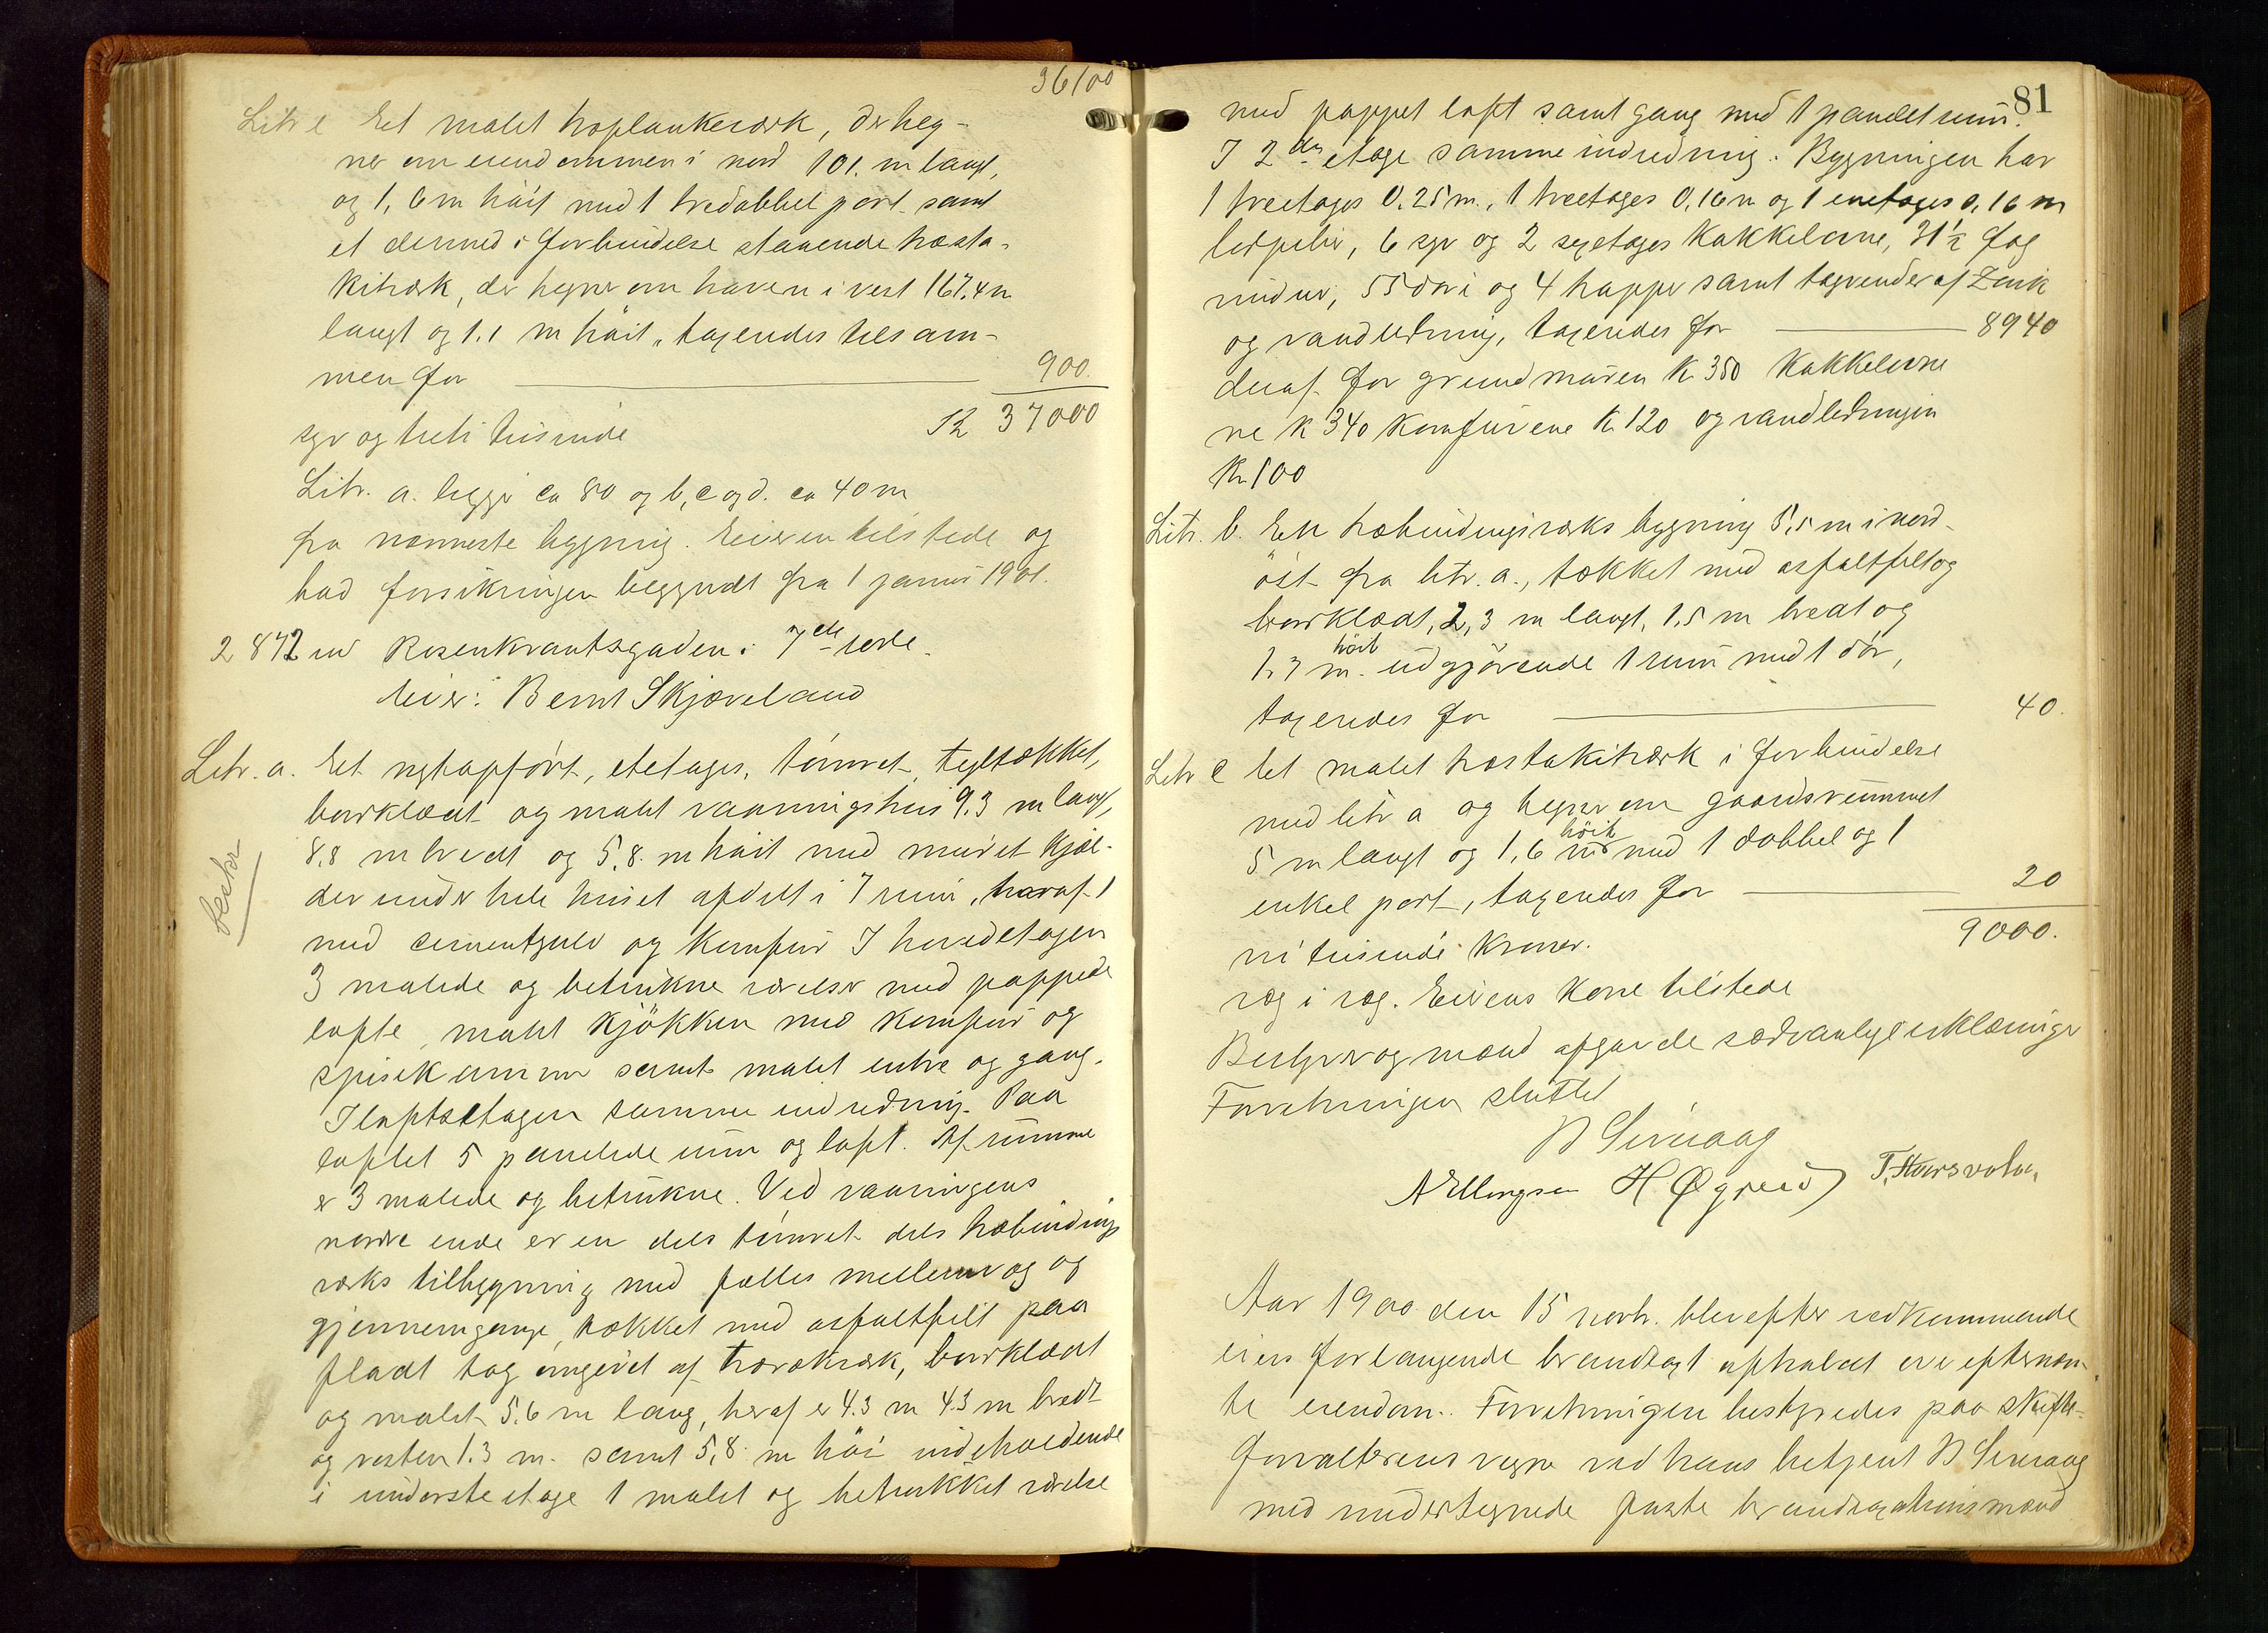 36100
Litr e Et malet træplankeværk, der heg-
ner om eiendommen i nord 101. m langt,
og 1,6 m höit med 1 tredobbel port samt
et dermed i forbindelse staaende træsta-
kitværk, der hegner om haven i vest 167,4 m
langt og 1.1 m höit, taxeredes tilsam-
men for 900.
syv og treti tusinde Kr 37000
Litr. a. ligger ca 80 og b, c og d. ca 40 m
fra nærmeste bygning. Eieren tilstede og
bad forsikringen begyndt fra 1 januar 1901.
2872 ved Rosenkrantsgaden i 7de rode.
Eier: Bernt Skjæveland
Litr. a. Et nyt opført, etetages, tömret, tegltækket,
bordklædt og malet vaaningshus 9.3 m langt,
beskr
8,8 m bredt og 5,8. m höit med muret kjæl-
der under hele huset afdelt i 7 rum, hvoraf 1
med cementgulv og komfur I hovedetagen
3 malede og betrukne værelser med pappede
lofte, malet kjökken med komfur og
spisekammer samt malet entre og gang.
I loftsetagen samme indredning. Paa
loftet 5 panelede rum og loft. Af rumme
er 3 malede og betrukne. Ved vaaningens
nordre ende er en dels tömret dels træbindings
værks tilbygning med fælles mellemvæg og
gjennemgange, tækket med asfaltfilt paa
fladt tag omgivet af træværk, bordklædt
og malet 5.6 m lang, heraf er 4.3 m 4.3 m bredt
og resten 1.3 m. samt 5,8 m höi indeholdende
i underste etage 1 malet og betrukket værelse
81
med pappet loft samt gang med 1 panelet rum.
I 2den etage samme indredning. Bygningen har
1 treetages 0.25 m., 1 treetages 0,16 m og 1 enetages 0,16 m
ledpiber, 6 syv og 2 sexetages kakkelovne, 31½ fag
vinduer, 55 döre og 4 trapper samt tagrender af Zink
og vandledning, taxeredes for 8940
deraf for grundmuren Kr 350 Kakkelovne
ne Kr 340 Komfurene Kr 120 og vandledningen
Kr 100
Litr. b. En træbindingsværks bygning 5,5 m i nord-
öst fra litr. a., tækket med asfaltfilt og
bordklædt, 2,3 m langt, 1,5 m bredt og
1.7 m höit udgjörende 1 rum med 1 dör,
taxeredes for 40.
Litr c Et malet træstakitværk i forbindelse
med litr a og hegner om gaardsrummet
5 m langt og 1,6 m höit med 1 dobbel og 1
enkel port, taxeredes for 20
9000.
ni tusinde kroner.
væg i væg. Eierens kone tilstede
Bestyrer og mænd afgav de sædvanlige erklæringer
Forretningen sluttet
B Sirevaag
A Ellingsen H Øgreid T. Haarsvolen
Aar 1900 den 15 novbr. blev efter vedkommende
eiers forlangende brandtaxt afholdt over efternævn-
te eiendom. Forretningen bestyredes paa skifte-
forvalterens vegne ved hans betjent B Sirevaag
med undertegnede faste brandtaxationsmænd